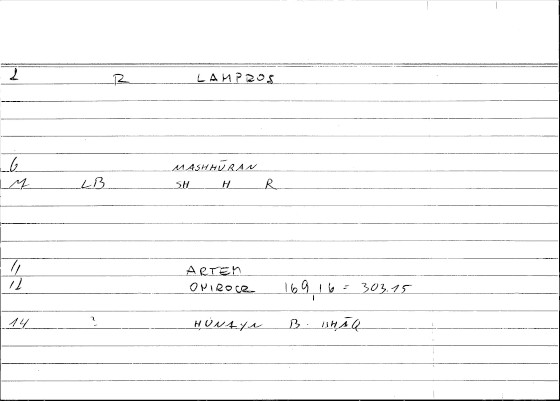 2 R LAMPROS
6 MASHHŪRAN
M LB SH H R
11 ARTEM
12 ONIROCR 169,16 = 303.15
14 ? HUNAYN B. ISHĀQ